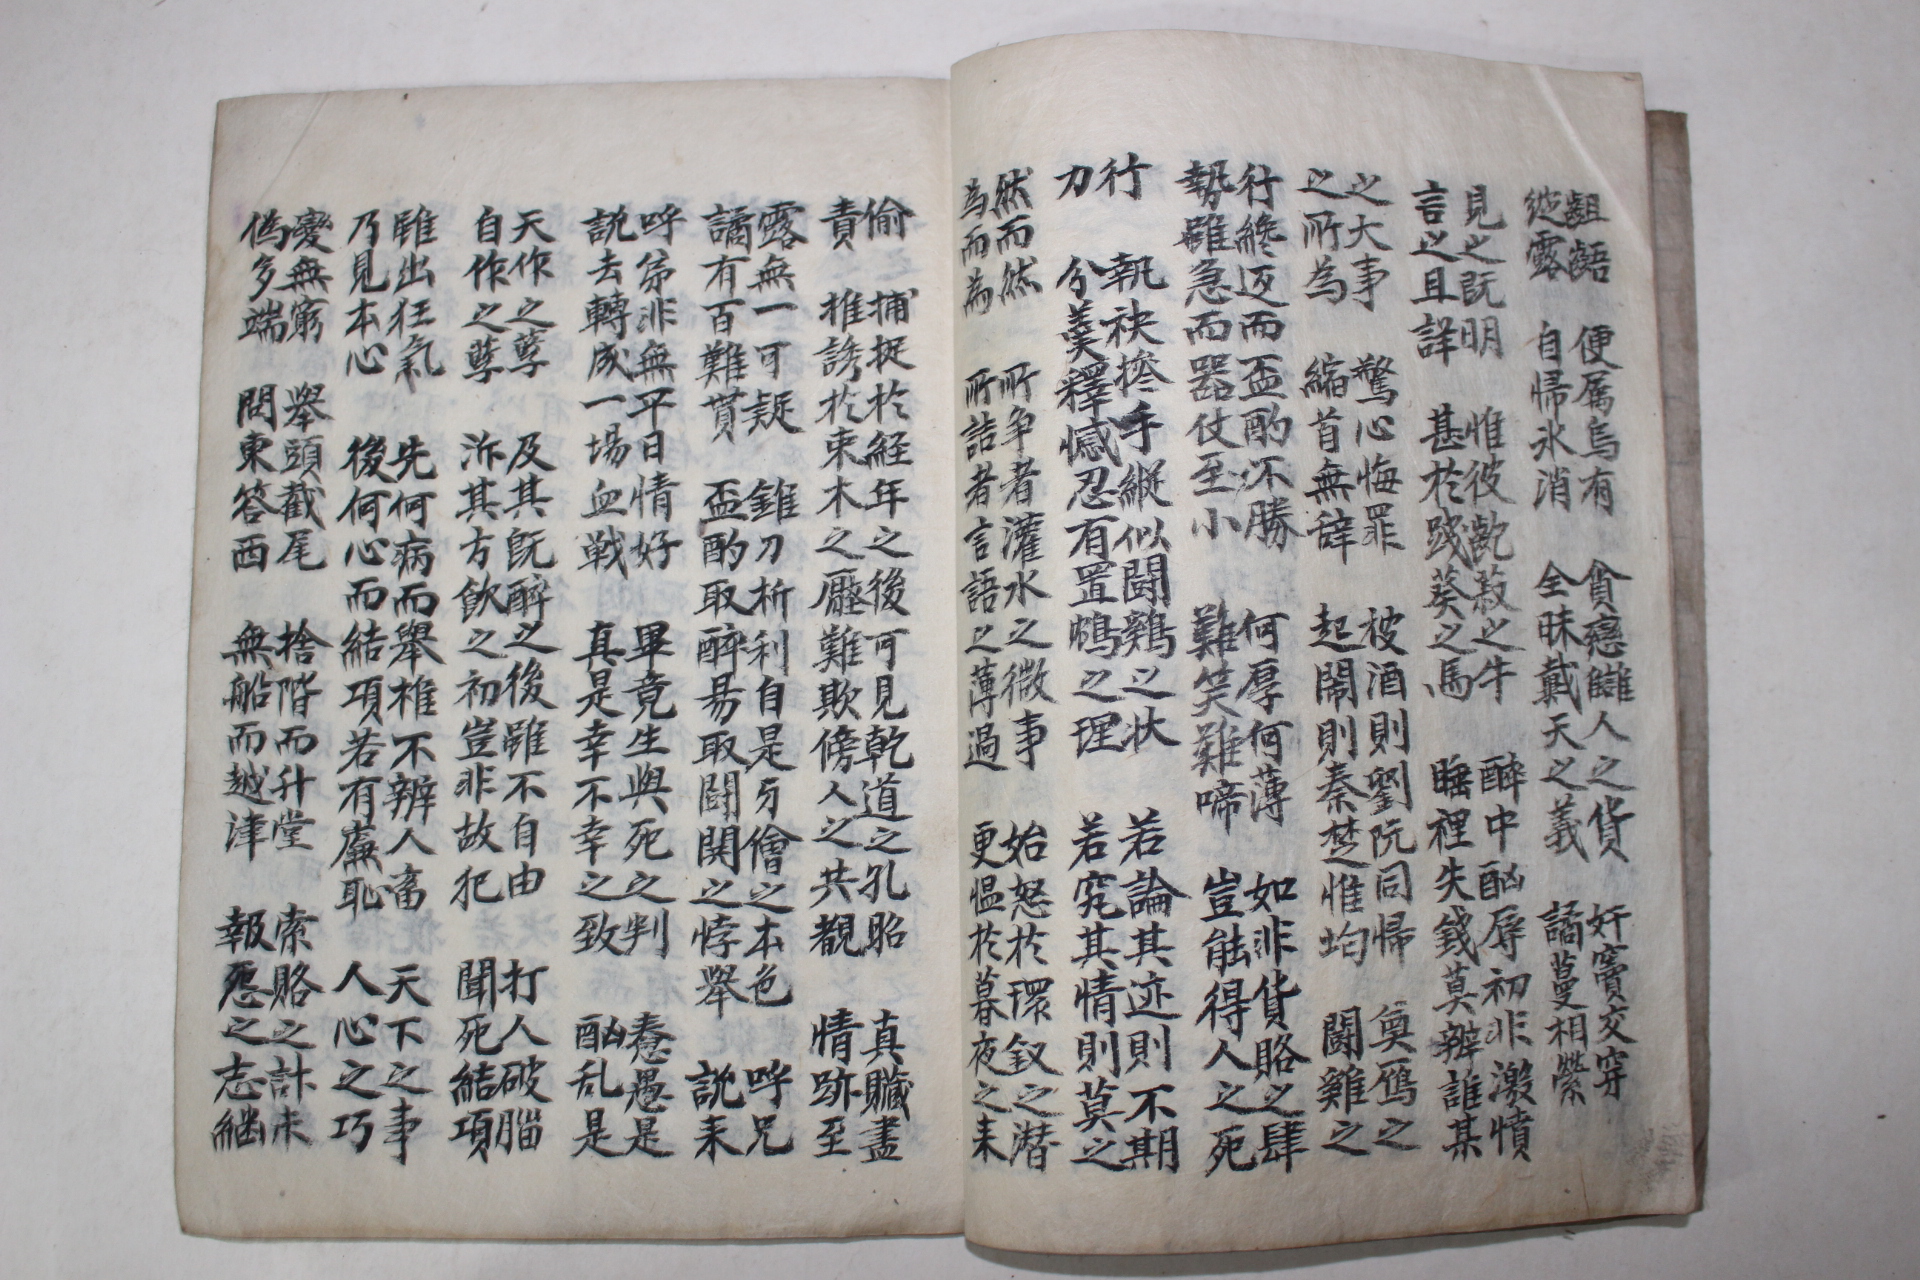 齟齬 便属烏有 貪戀讎人之貨 奸竇交穿
綻露 自帰氷消 全昧戴天之義 譎蔓相縈
見之既明 惟彼觳觫之牛 醉中酗辱初非激憤
言之且詳 甚於踐葵之馬 睡裡失錢莫辨誰某
之大事 驚心悔罪 被酒則劉阮同帰 奠鴈之
之所為 縮首無辞 起鬧則秦楚惟均 鬪雞之
行纔返而盃酌不勝 何厚何薄 如非貨賂之肆
勢雖急而器仗至小 難笑難啼 豈能得人之死
行 執袂摻手縱似鬪鷄之状 若論其迹則不期
力 分羹釋憾忍有置鴆之理 若究其情則莫之
然而然 所争者灌水之微事 始怒於環釵之潜
為而為 所詰者言語之薄過 更慍於暮夜之来
偷 捕捉於経年之後可見乾道之孔昭 真贓盡
責 推誘於束木之廳難欺傍人之共覩 情跡至
露無一可疑 錐刀析利自是牙儈之本色 呼兄
譎有百難貰 盃酌取醉易取鬪閧之悖舉 説来
呼弟非無平日情好 畢竟生與死之判 惷愚是
説去轉成一場血戦 真是幸不幸之致 酗乱是
天作之孽 及其既醉之後雖不自由 打人破腦
自作之孽 泝其方飲之初豈非故犯 聞死結項
雖出狂氣 先何病而舉椎不辨人畜 天下之事
乃見本心 後何心而結項若有廉恥 人心之巧
變無窮 舉頭截尾 捨階而升堂 索賂之計未
偽多端 問東答西 無船而越津 報怨之志継